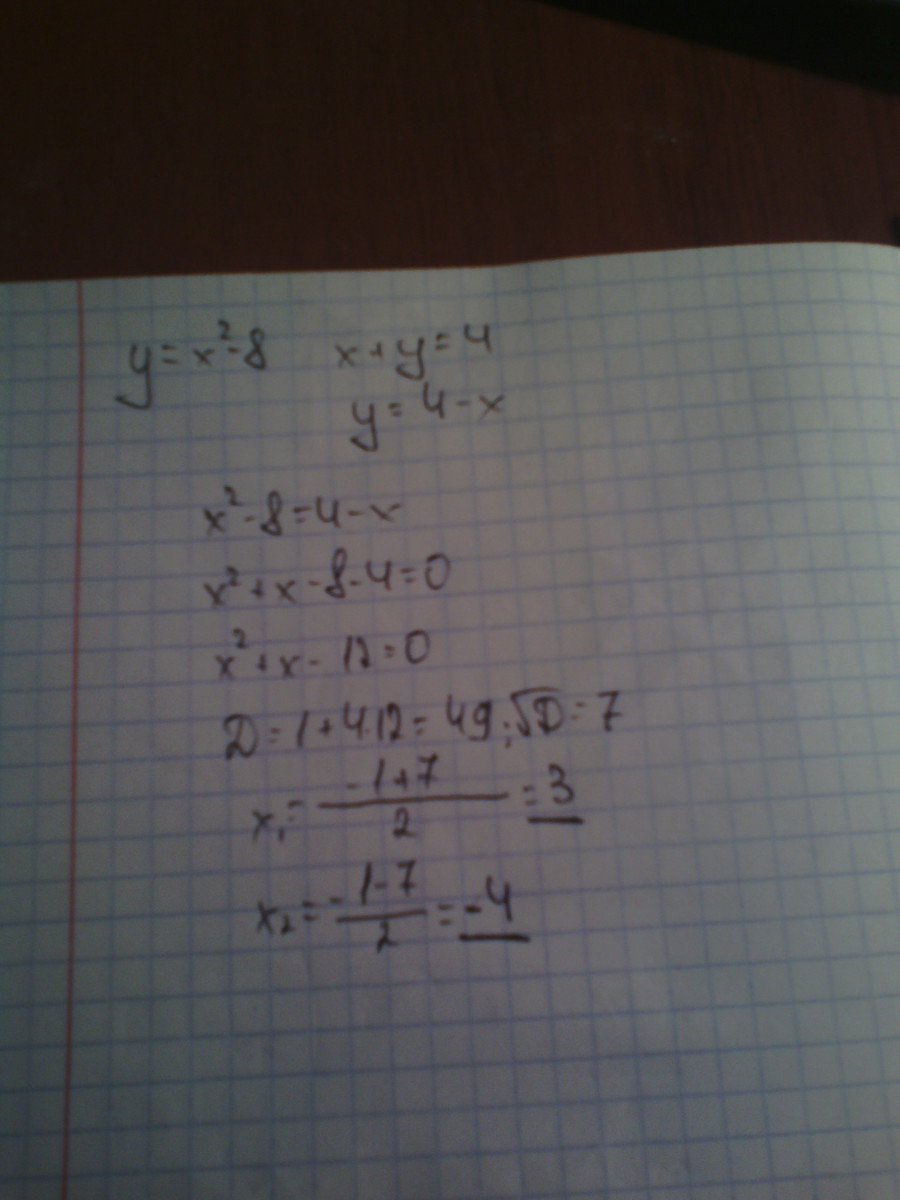 y = x² - 8 x + y = 4
y = 4 - x
x² - 8 = 4 - x
x² + x - 8 - 4 = 0
x² + x - 12 = 0
D = 1 + 4·12 = 49; √D = 7
x₁ = (-1+7)/2 = 3
x₂ = (-1-7)/2 = -4